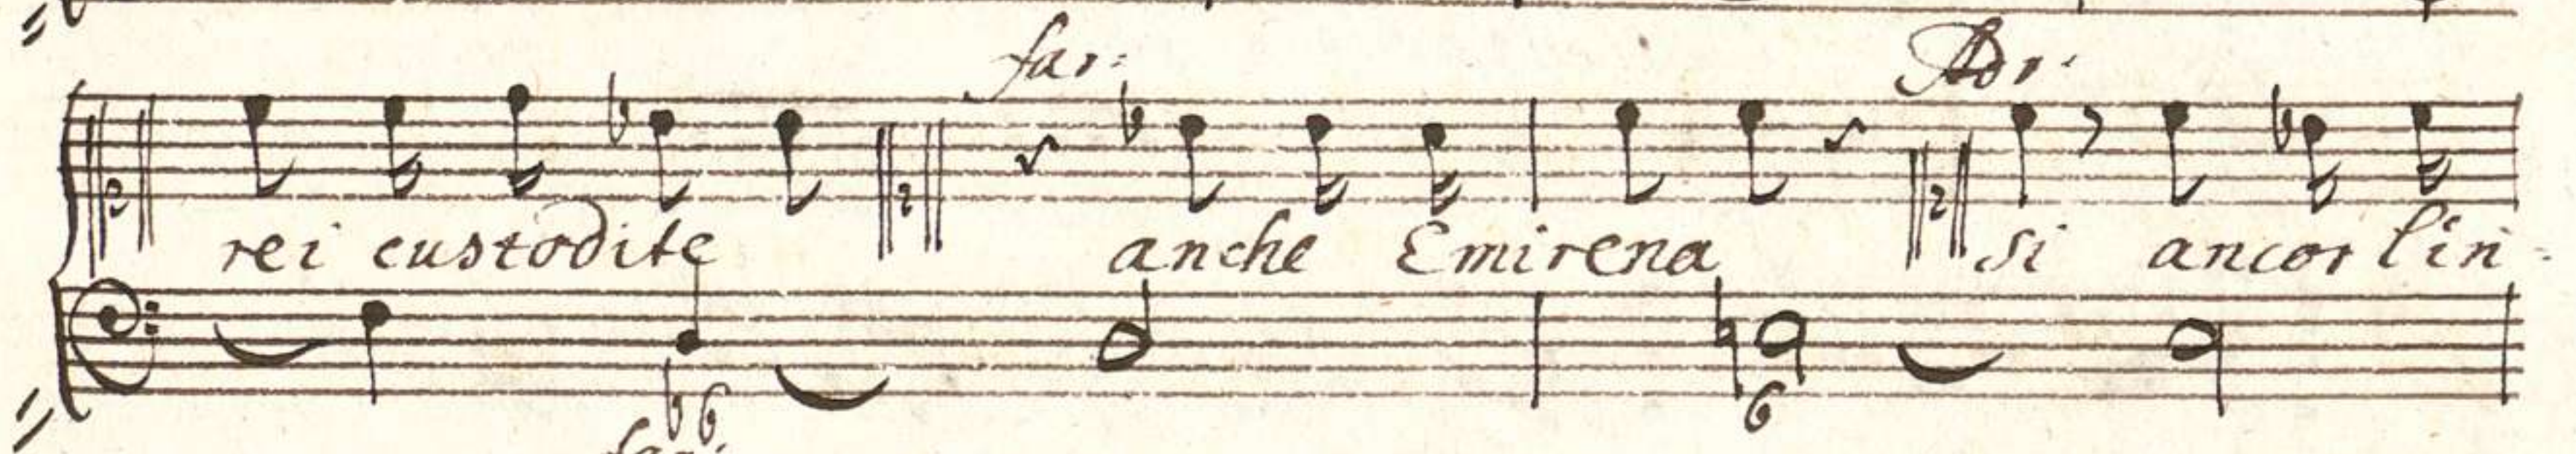 far: Adr.
rei custodite anche Emirena si ancor lin-
b6 6
far: